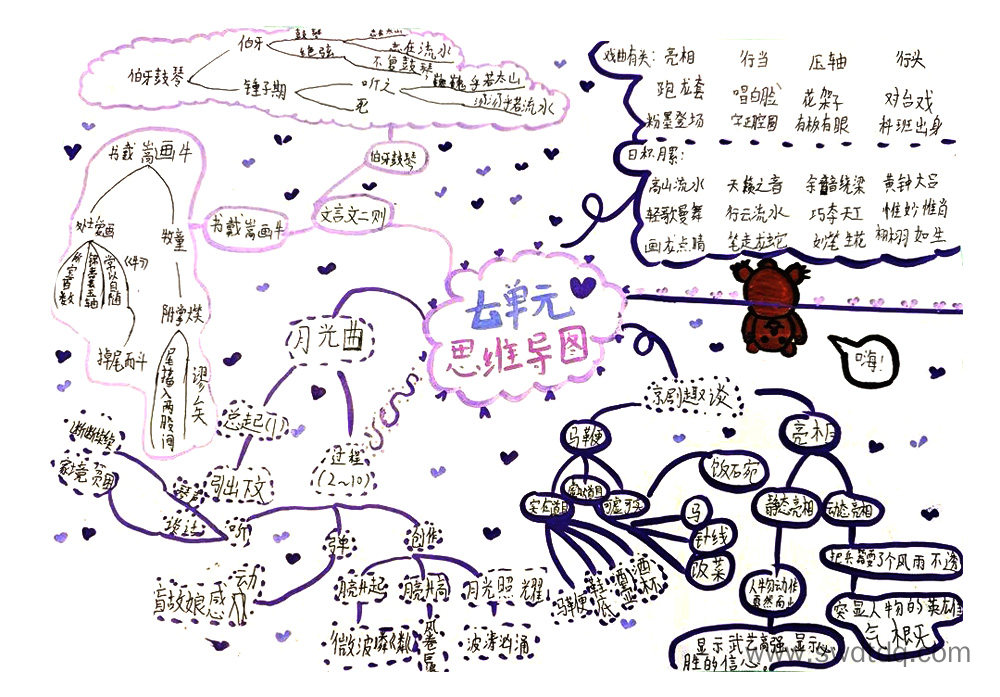 七单元
思维导图
文言文二则
伯牙鼓琴
伯牙鼓琴
伯牙
鼓琴
绝弦
志在流水
不复鼓琴
锺子期
听之
死
巍巍乎若太山
汤汤乎若流水
书戴嵩画牛
书戴嵩画牛
牧童
掉尾而斗
尾搐入两股间
谬矣
锦囊玉轴
常以自随
月光曲
总起(1)
引出下文
过程
(2~10)
断断续续
家境贫困
琴声
谈话
听
弹
盲姑娘感动
创作
月亮升起
月亮升高
月光照耀
微波粼粼
风卷巨浪
波涛汹涌
戏曲有关:亮相 行当 压轴 行头
跑龙套 唱白脸 花架子 对台戏
粉墨登场 字正腔圆 有板有眼 科班出身
日积月累:
高山流水 天籁之音 余音绕梁 黄钟大吕
轻歌曼舞 行云流水 巧夺天工 惟妙惟肖
画龙点睛 笔走龙蛇 妙笔生花 栩栩如生
嗨!
京剧趣谈
马鞭
实在道具
虚拟道具
马鞭
鞋底
酒杯
马
针线
饭菜
亮相
静态亮相
动态亮相
人物动作
显示武艺高强,显示必
胜的信心。
突显人物的英雄
气概
www.swdtdq.com